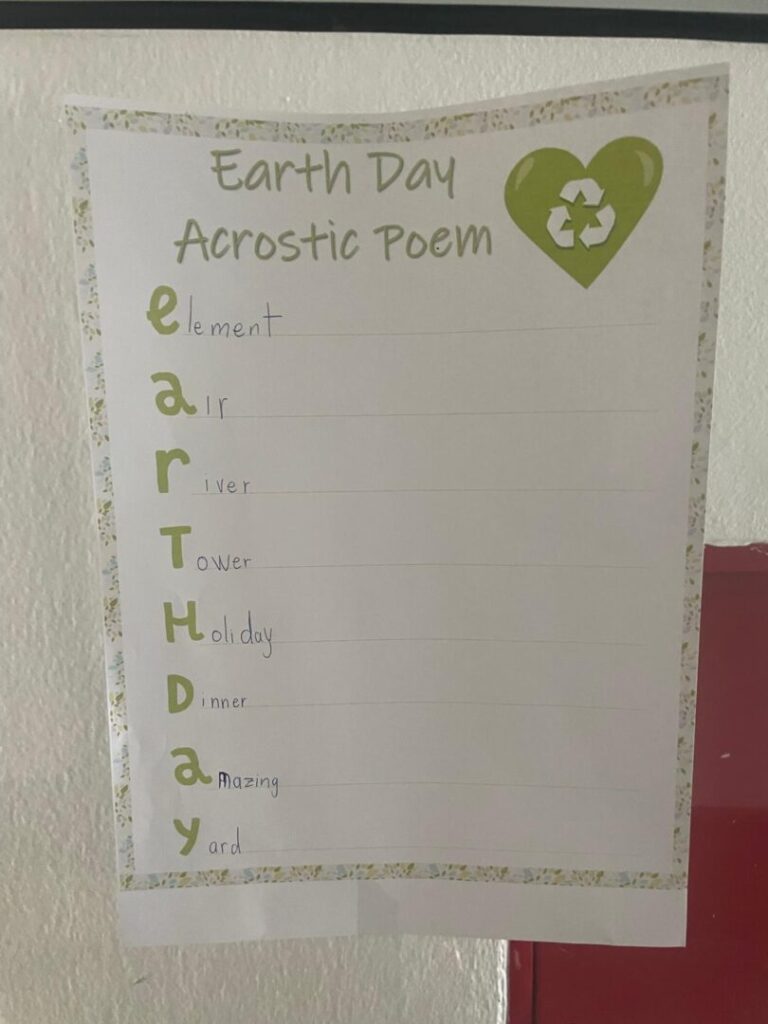 Earth Day
Acrostic Poem
element
air
river
Tower
Holiday
Dinner
amazing
yard